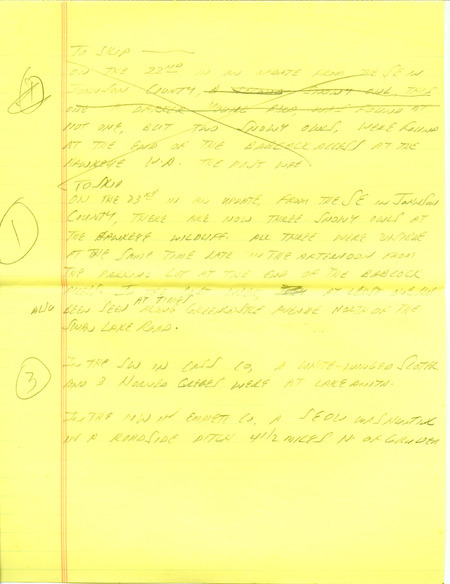 TO SKIP
ON THE 22ND IN AN UPDATE FROM THE SE IN
JOHNSON COUNTY, A SNOWY OWL, THIS
ONE A YOUNG BIRD, WAS FOUND AT
NOT ONE, BUT TWO SNOWY OWLS, WERE FOUND
AT THE END OF THE BABCOCK ACCESS AT THE
HAWKEYE W.A. THE PAST WEE
TO SKIP
1
ON THE 23RD IN AN UPDATE, FROM THE SE IN JOHNSON
COUNTY, THERE ARE NOW THREE SNOWY OWLS AT
THE HAWKEYE WILDLIFE. ALL THREE WERE VISIBLE
AT THE SAME TIME LATE IN THE AFTERNOON FROM
THE PARKING LOT AT THE END OF THE BABCOCK
ACCESS. IN THE PAST WEEK, AT LEAST ONE HAS
ALSO BEEN SEEN AT TIMES ALONG GREENCASTLE AVENUE NORTH OF THE
SWAN LAKE ROAD.
3
IN THE SW IN CASS CO, A WHITE-WINGED SCOTER
AND 3 HORNED GREBES WERE AT LAKE ANITA.
IN THE NW IN EMMETT CO, A SEOW WAS HUNTING
IN A ROADSIDE DITCH 4 1/2 MILES N OF GRUVER